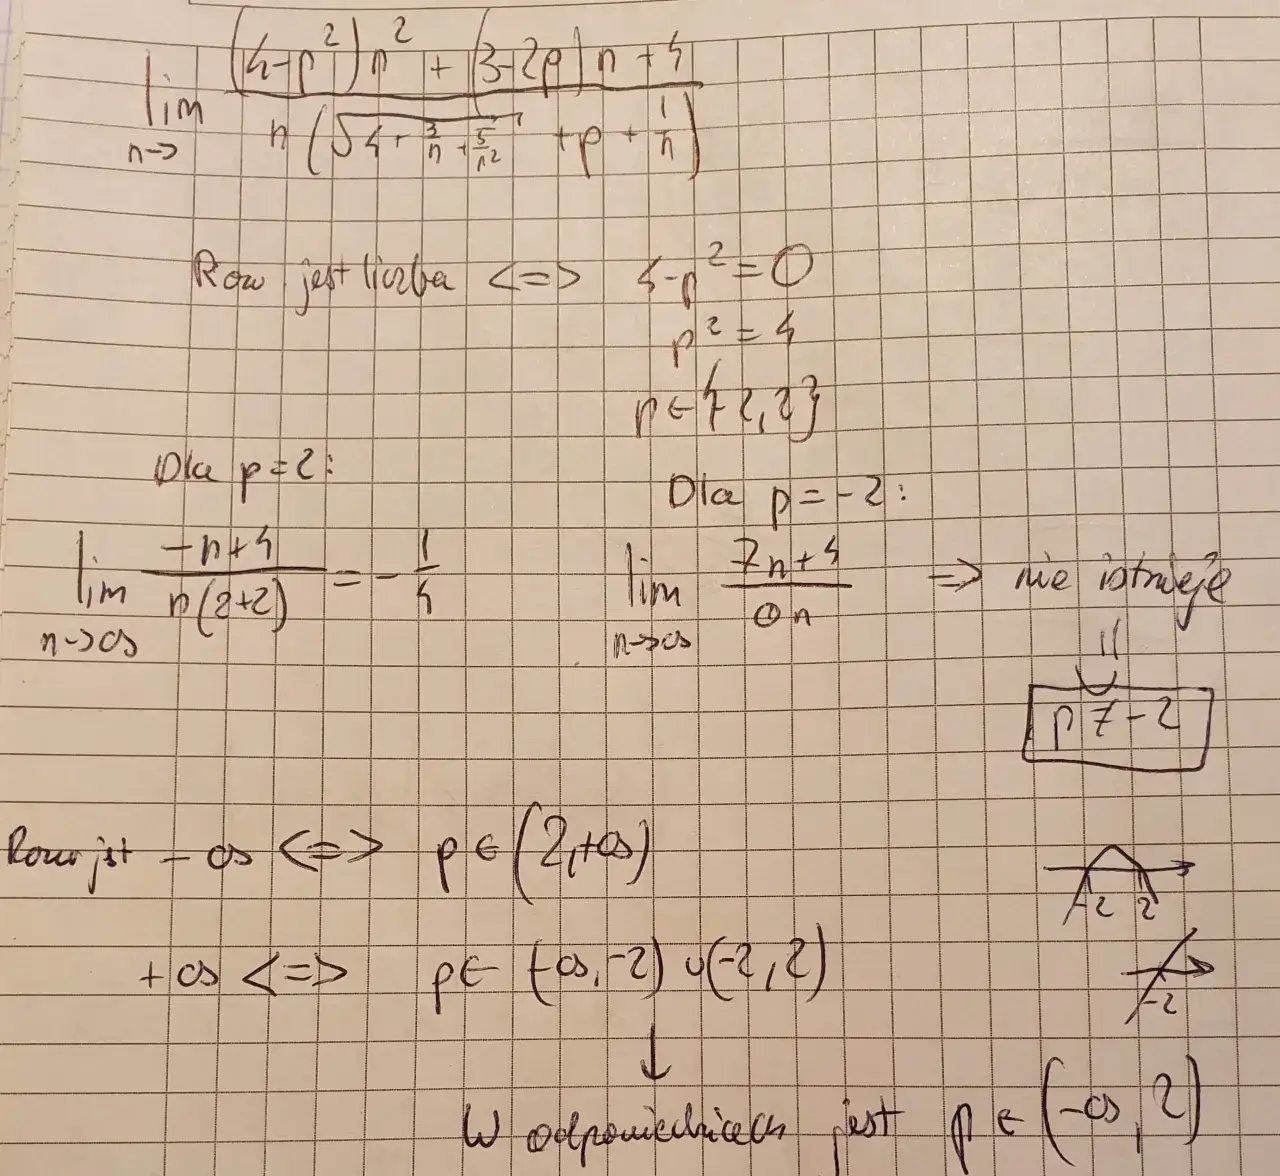 lim n-> (4-p²)n² + (3-2p)n + 4 / n(√4 + 3/n + 5/n² + p + 1/n)
Row jest liczba <=> 4-p² = 0
p² = 4
p ∈ {-2, 2}
Dla p = 2:
Dla p = -2:
lim n->∞ -n+4 / n(2+2) = - 1/4
lim n->∞ 7n+4 / 0n => nie istnieje
p ≠ -2
Row jest - ∞ <=> p ∈ (2, +∞)
-2 2
+ ∞ <=> p ∈ (-∞, -2) ∪ (-2, 2)
-2
W odpowiedziach jest p ∈ (-∞, 2)